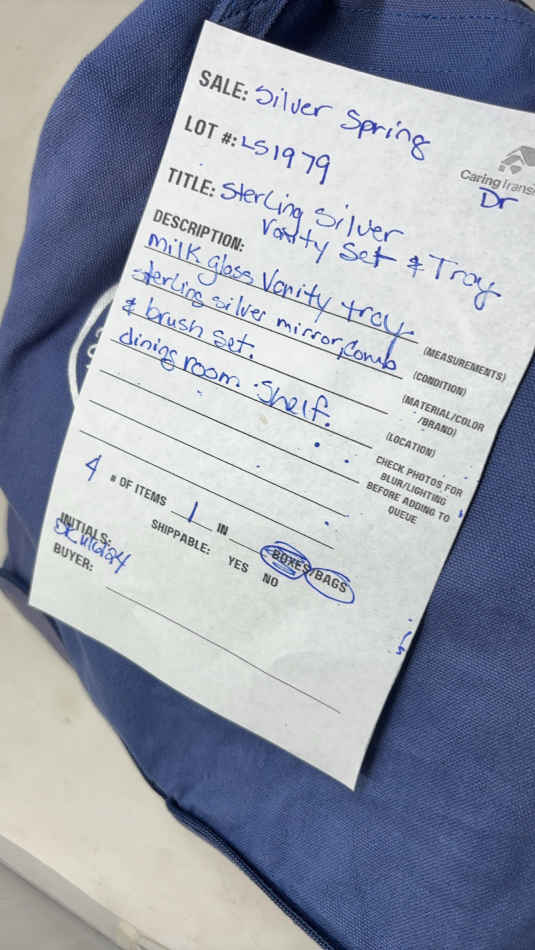 SALE: Silver Spring
CaringTrans
Dr
LOT #: LS1979
TITLE: Sterling Silver
Vanity Set & Tray
DESCRIPTION:
milk glass Vanity tray
(MEASUREMENTS)
sterling silver mirror, Comb
(CONDITION)
& brush set.
(MATERIAL/COLOR
/BRAND)
dining room shelf.
(LOCATION)
CHECK PHOTOS FOR
BLUR/LIGHTING
BEFORE ADDING TO
QUEUE
4 # OF ITEMS 1 IN BOXES/BAGS
SHIPPABLE: YES NO
INITIALS:
BUYER: